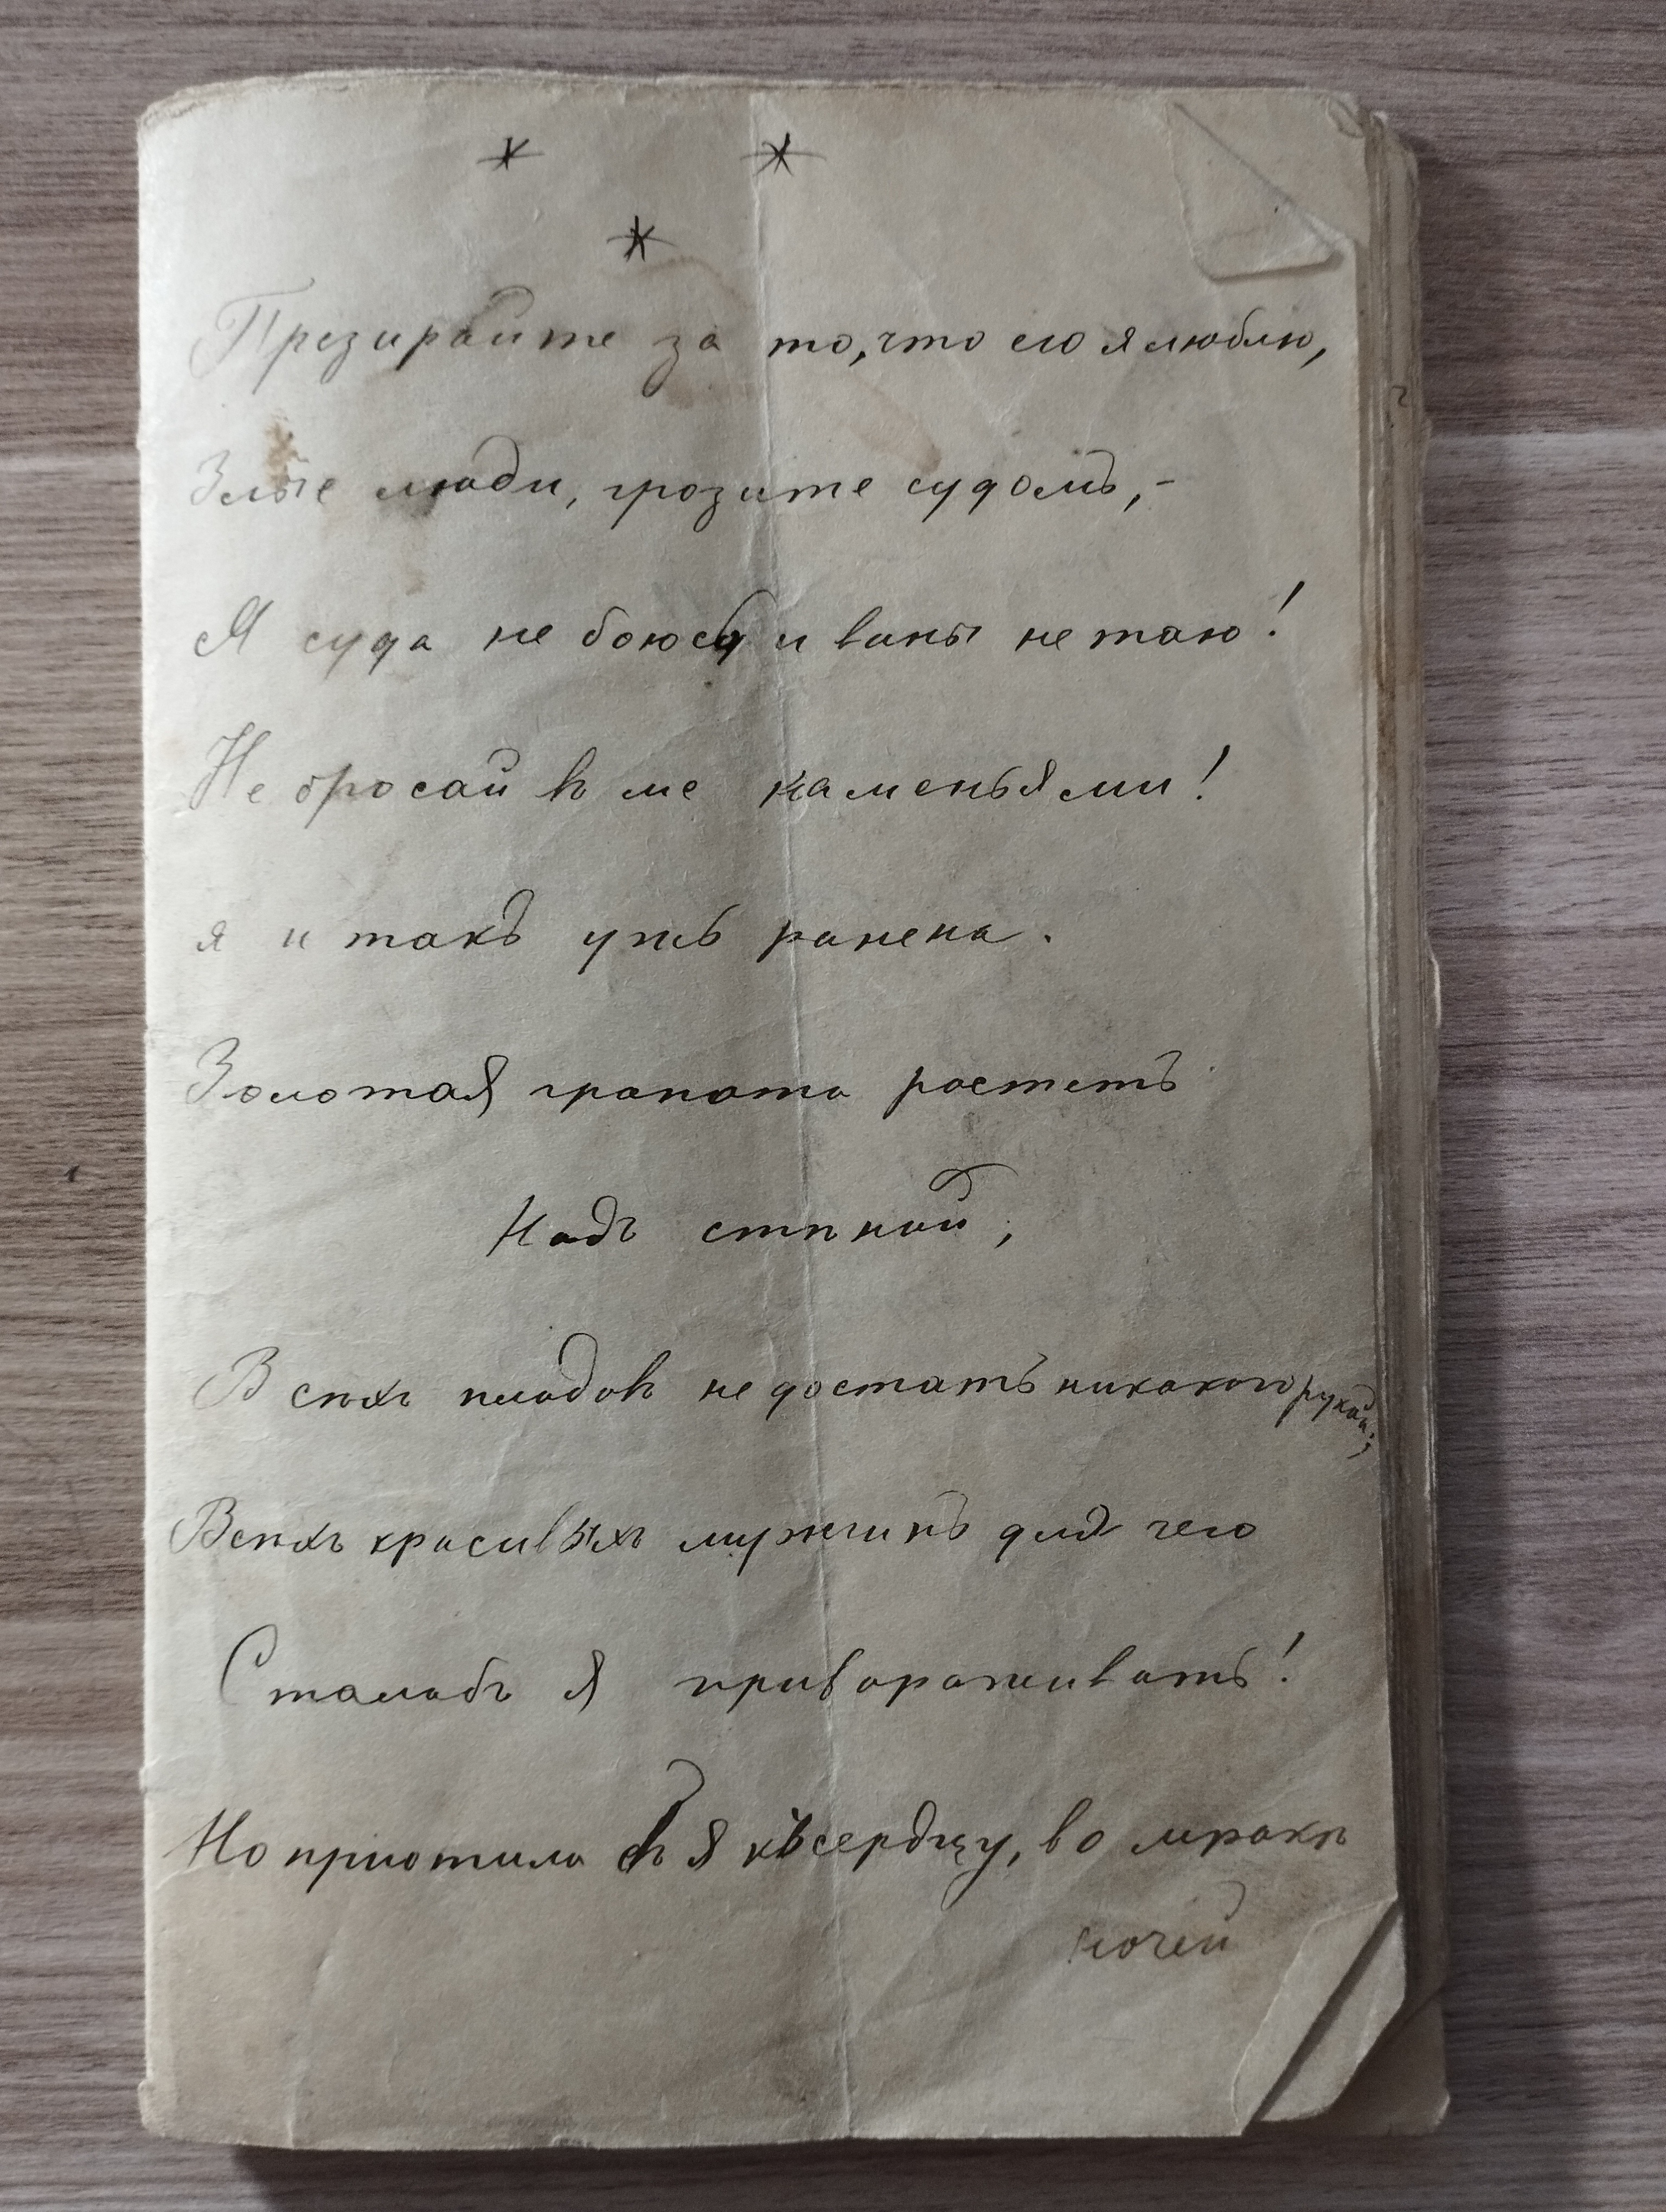 * *
*
Презирайте за то, что его я люблю,
Злые люди, грозите судомъ, -
Я суда не боюся и вины не таю!
Не бросай въ ме каменьями!
я и такъ ужъ ранена.
Золотая граната ростетъ
Надъ стѣной,
Всѣхъ плодовъ не достать никакого рукой;
Всѣхъ красивыхъ мужчинъ для чего
Сталабъ я привораживать!
Но приютила бъ я къ сердцу, во мракѣ
ночей